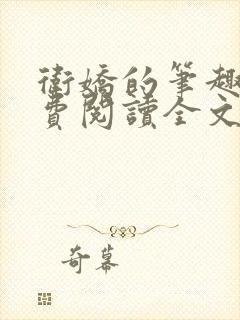 衛嬌的筆趣
費閱讀全文
奇幕